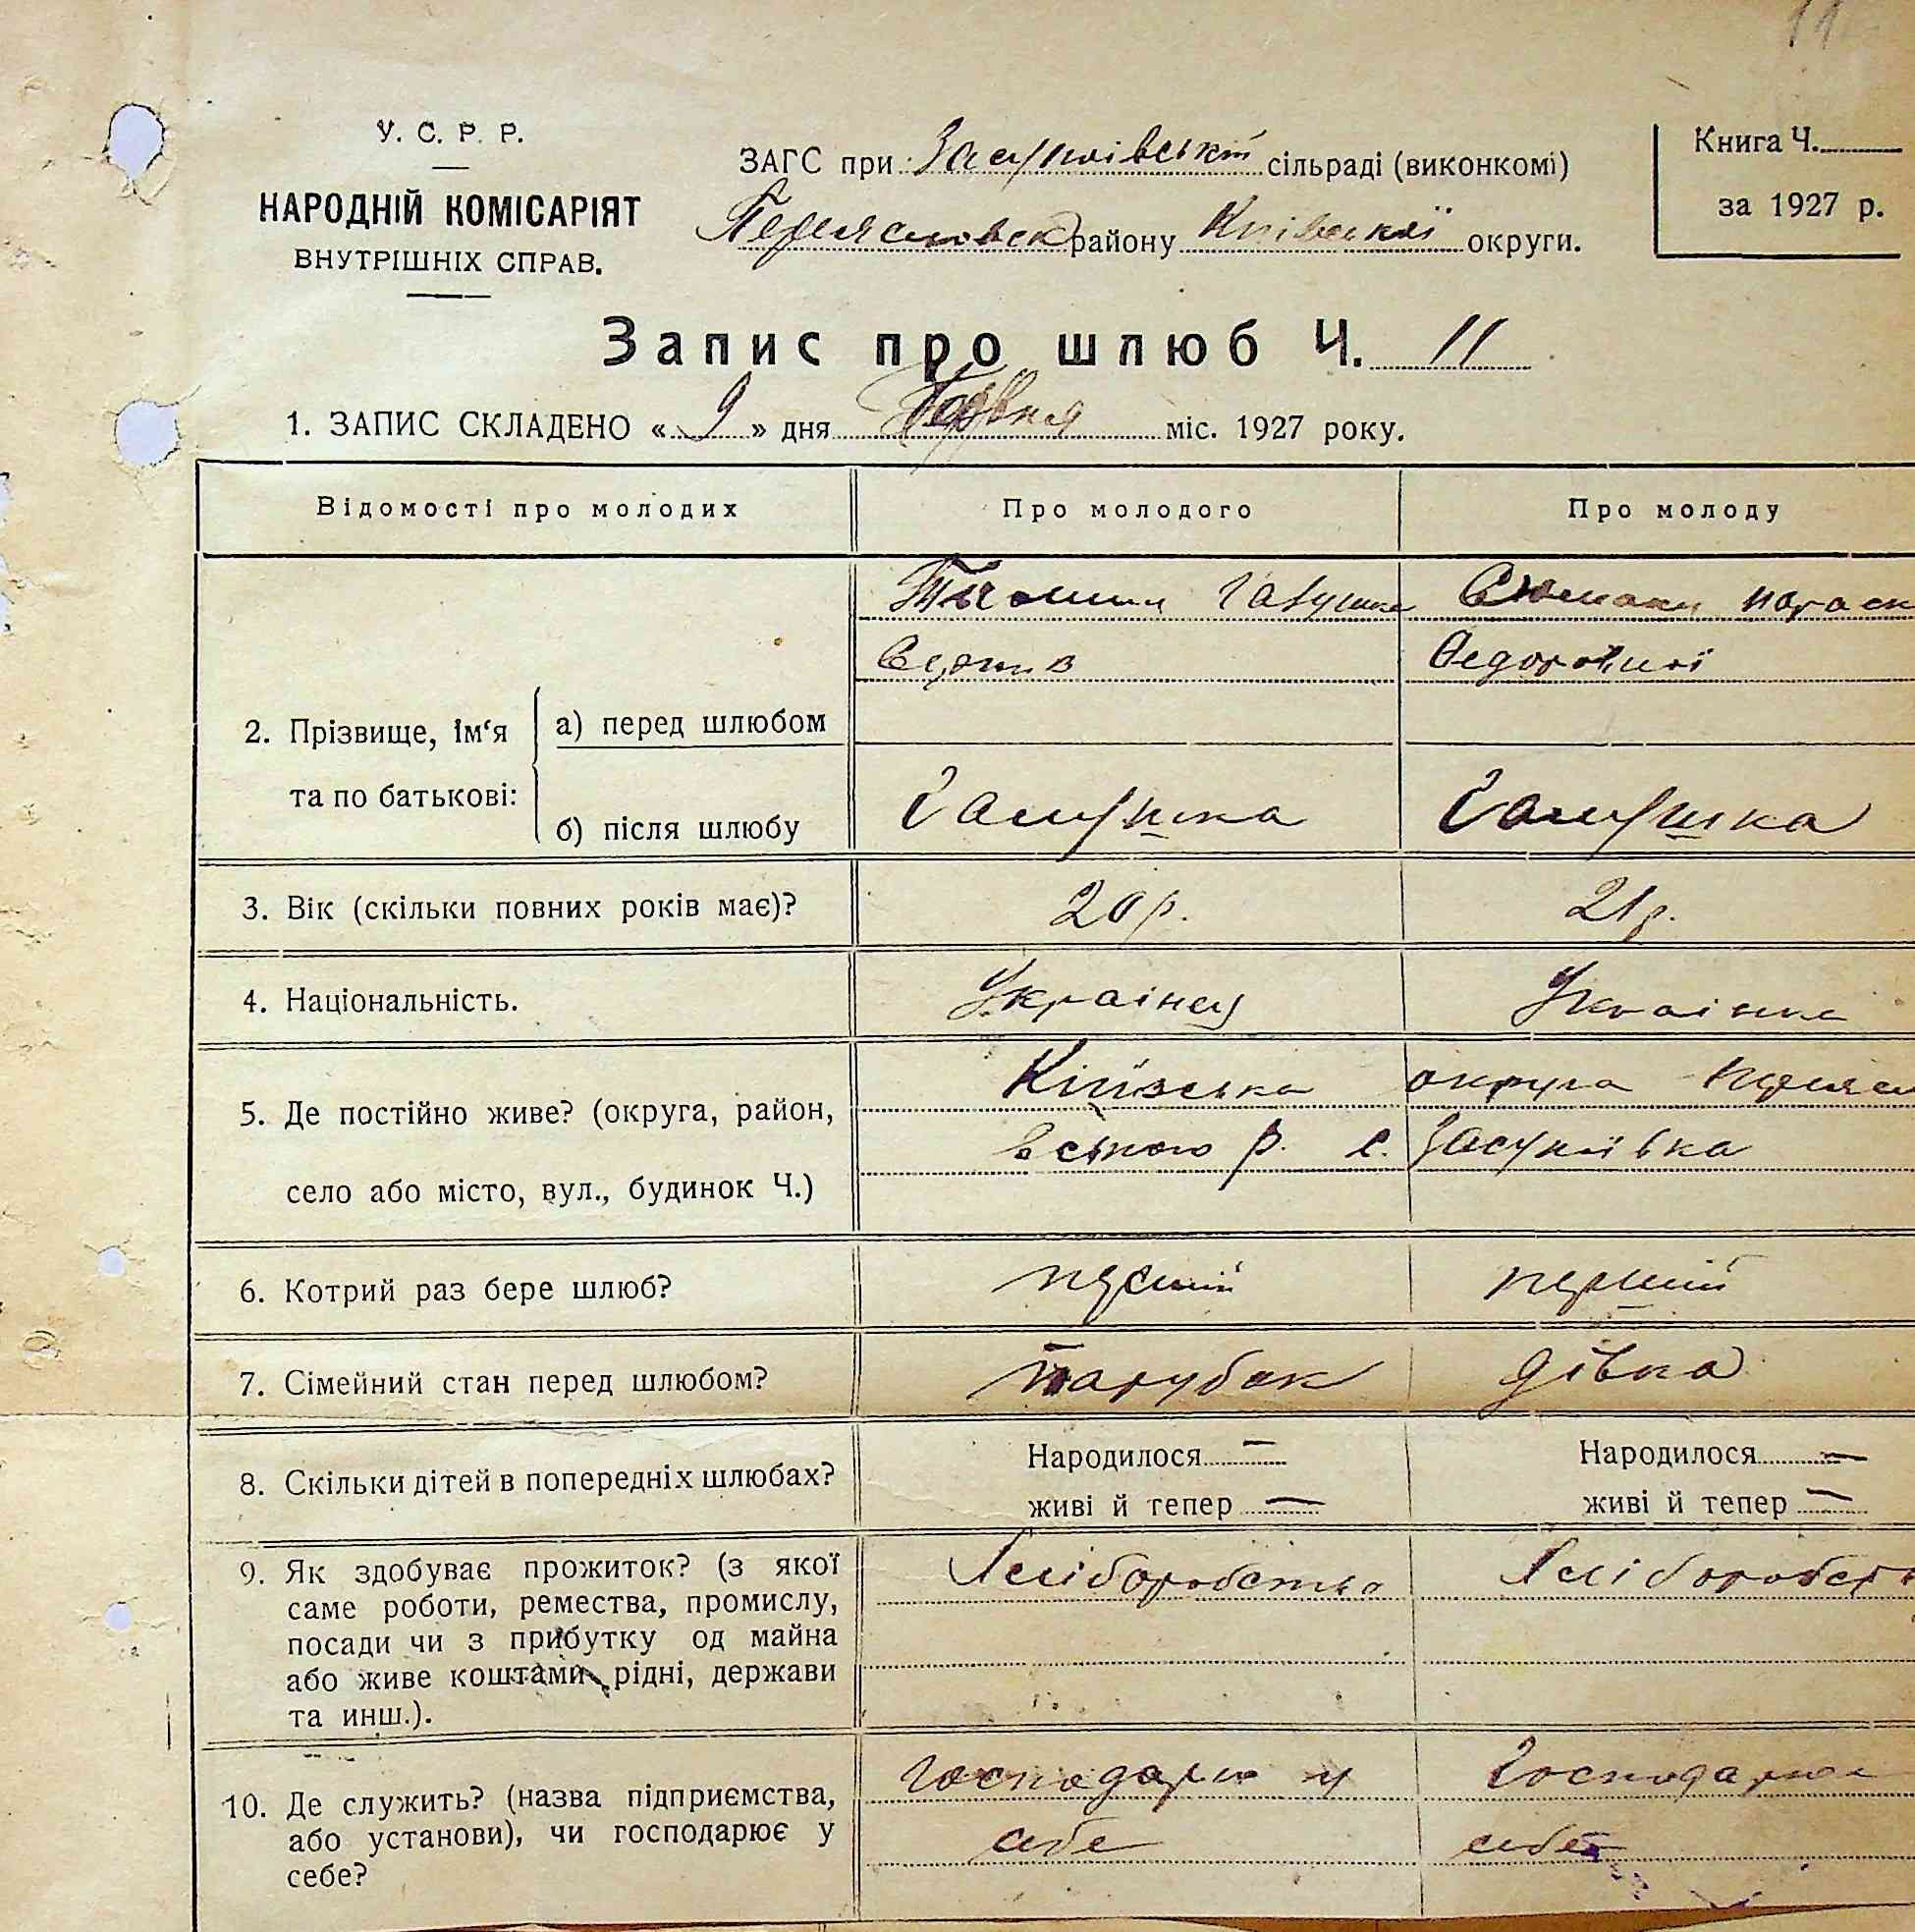 11
У. С. Р. Р.
НАРОДНІЙ КОМІСАРІЯТ
ВНУТРІШНІХ СПРАВ.
ЗАГС при Засупоівській сільраді (виконкомі)
району Київської округи.
Книга Ч.
за 1927 р.
Запис про шлюб Ч. 11
1. ЗАПИС СКЛАДЕНО « 9 » дня міс. 1927 року.
Відомості про молодих Про молодого Про молоду
Федоровної
2. Прізвище, ім‘я а) перед шлюбом
та по батькові:
б) після шлюбу Галушка Галушка
3. Вік (скільки повних років має)? 20 р. 21 р.
4. Національність. Українец Украінка
5. Де постійно живе? (округа, район, Київська округа
село або місто, вул., будинок Ч.) р. с.
6. Котрий раз бере шлюб? перший
7. Сімейний стан перед шлюбом? парубак дівка
8. Скільки дітей в попередніх шлюбах? Народилося — Народилося —
живі й тепер — живі й тепер —
9. Як здобуває прожиток? (з якої Хліборобство Хліборобст
саме роботи, ремества, промислу,
посади чи з прибутку од майна
або живе коштами рідні, держави
та инш.).
10. Де служить? (назва підприємства,
або установи), чи господарює у себе себе
себе?